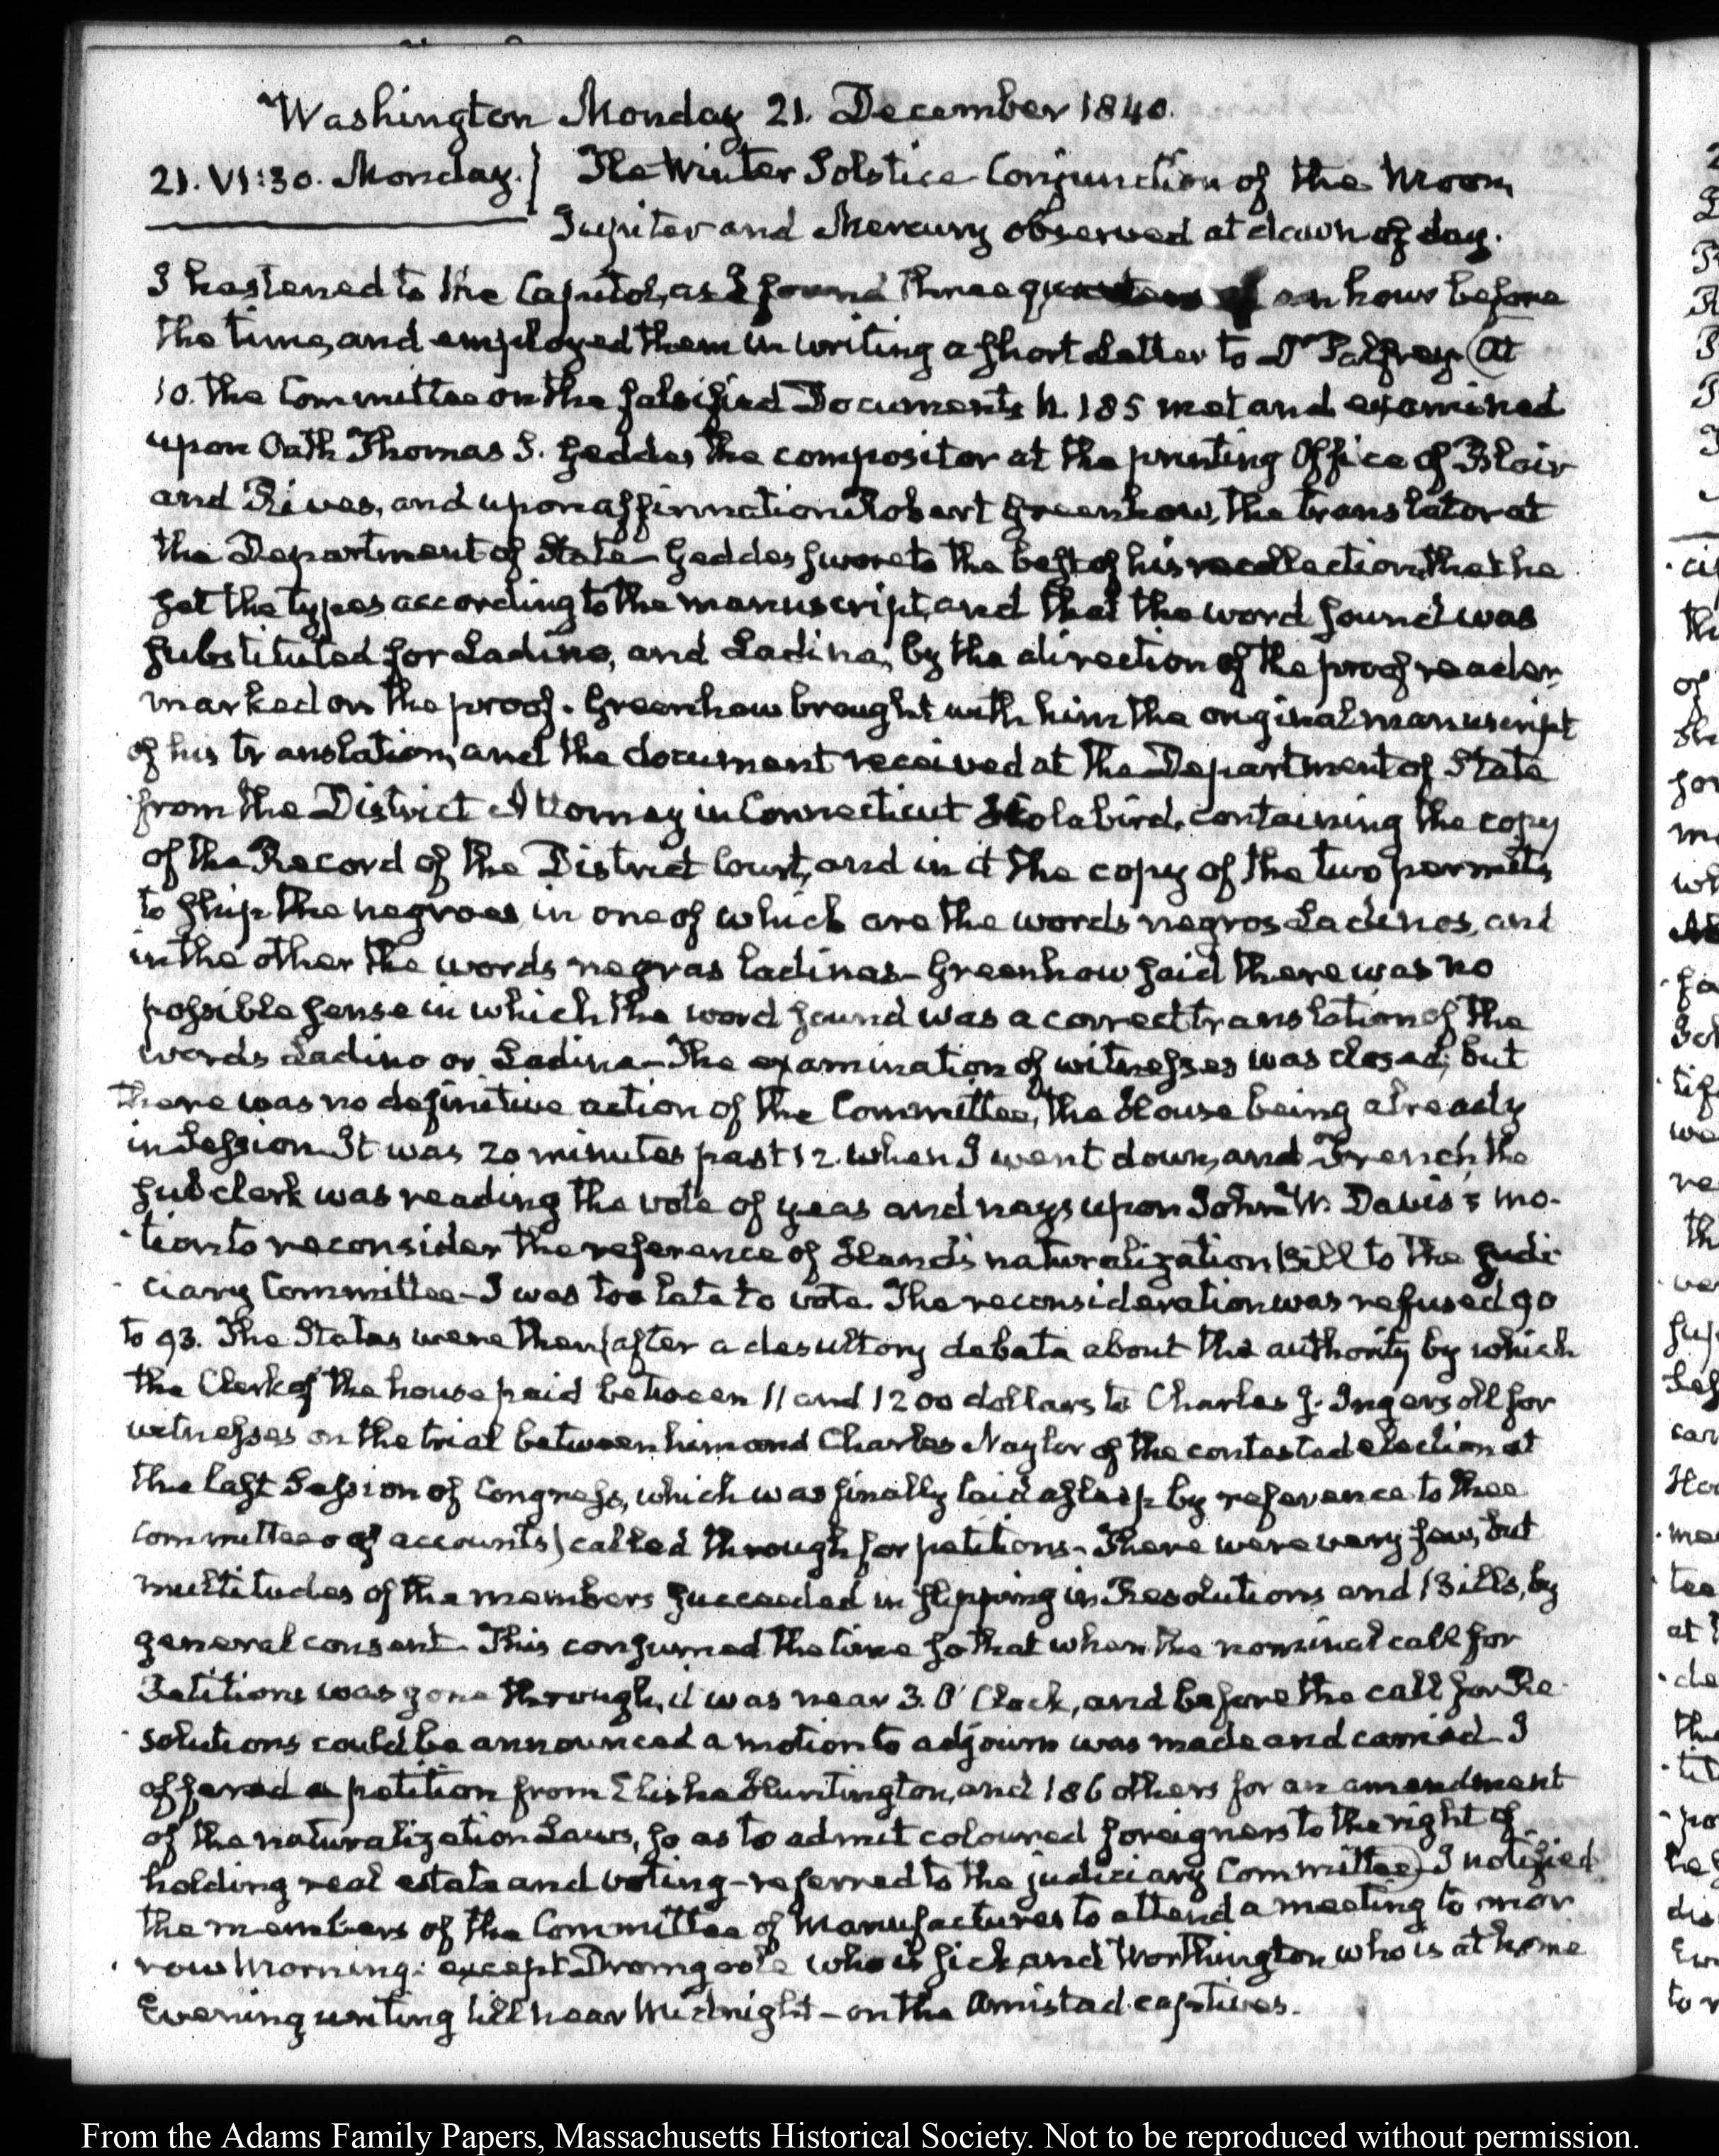 Washington Monday 21. December 1840.
21. VI:30. Monday. } The Winter Solstice Conjunction of the Moon,
Jupiter and Mercury observed at dawn of day.
I hastened to the Capitol, as I found three quarters of an hour before
the time, and employed them in writing a short Letter to Dr Palfrey. At
10. the Committee on the falsified Documents N. 185 met and examined
upon Oath Thomas S. Geddes, the compositor at the printing Office of Blair
and Rives, and upon affirmation Robert Greenhow, the translator at
the Department of State— Geddes swore to the best of his recollection, that he
set the types according to the manuscript, and that the word sound was
substituted for Ladino, and Ladina, by the direction of the proof reader,
marked on the proof. Greenhow brought with him the original manuscript
of his translation, and the document received at the Department of State
from the District Attorney in Connecticut Holabird, containing the copy
of the Record of the District Court, and in it the copy of the two permits
to ship the negroes, in one of which are the words negros Ladinos, and
in the other the words negras ladinas— Greenhow said there was no
possible sense in which the word sound was a correct translation of the
words Ladino or Ladina— The examination of witnesses was closed; but
there was no definitive action of the Committee, the House being already
in Session. It was 20 minutes past 12. when I went down, and French the
sub clerk was reading the vote of yeas and nays upon John W. Davis's mo-
tion to reconsider the reference of Hand's naturalization Bill to the Judi-
ciary Committee— I was too late to vote. The reconsideration was refused 90
to 93. The States were then (after a desultory debate about the authority by which
the Clerk of the house paid between 11 and 1200 dollars to Charles J. Ingersoll for
witnesses on the trial between him and Charles Naylor of the contested election at
the last Session of Congress, which was finally laid asleep by reference to thee
Committee of accounts) called through for petitions— There were very few, but
multitudes of the members succeeded in slipping in Resolutions and Bills, by
general consent— This consumed the time so that when the nominal call for
Petitions was gone through, it was near 3. O'Clock, and before the call for Re-
solutions could be announced a motion to adjourn was made and carried— I
offered a petition from Elisha Huntington, and 186 others for an amendment
of the naturalization Laws, so as to admit coloured foreigners to the right of
holding real estate and voting— referred to the judiciary Committee. I notified
the members of the Committee of Manufactures to attend a meeting to mor-
row Morning: except Dromgoole who is sick and Worthington who is at home
Evening writing till near Midnight— on the Amistad captives.
From the Adams Family Papers, Massachusetts Historical Society. Not to be reproduced without permission.